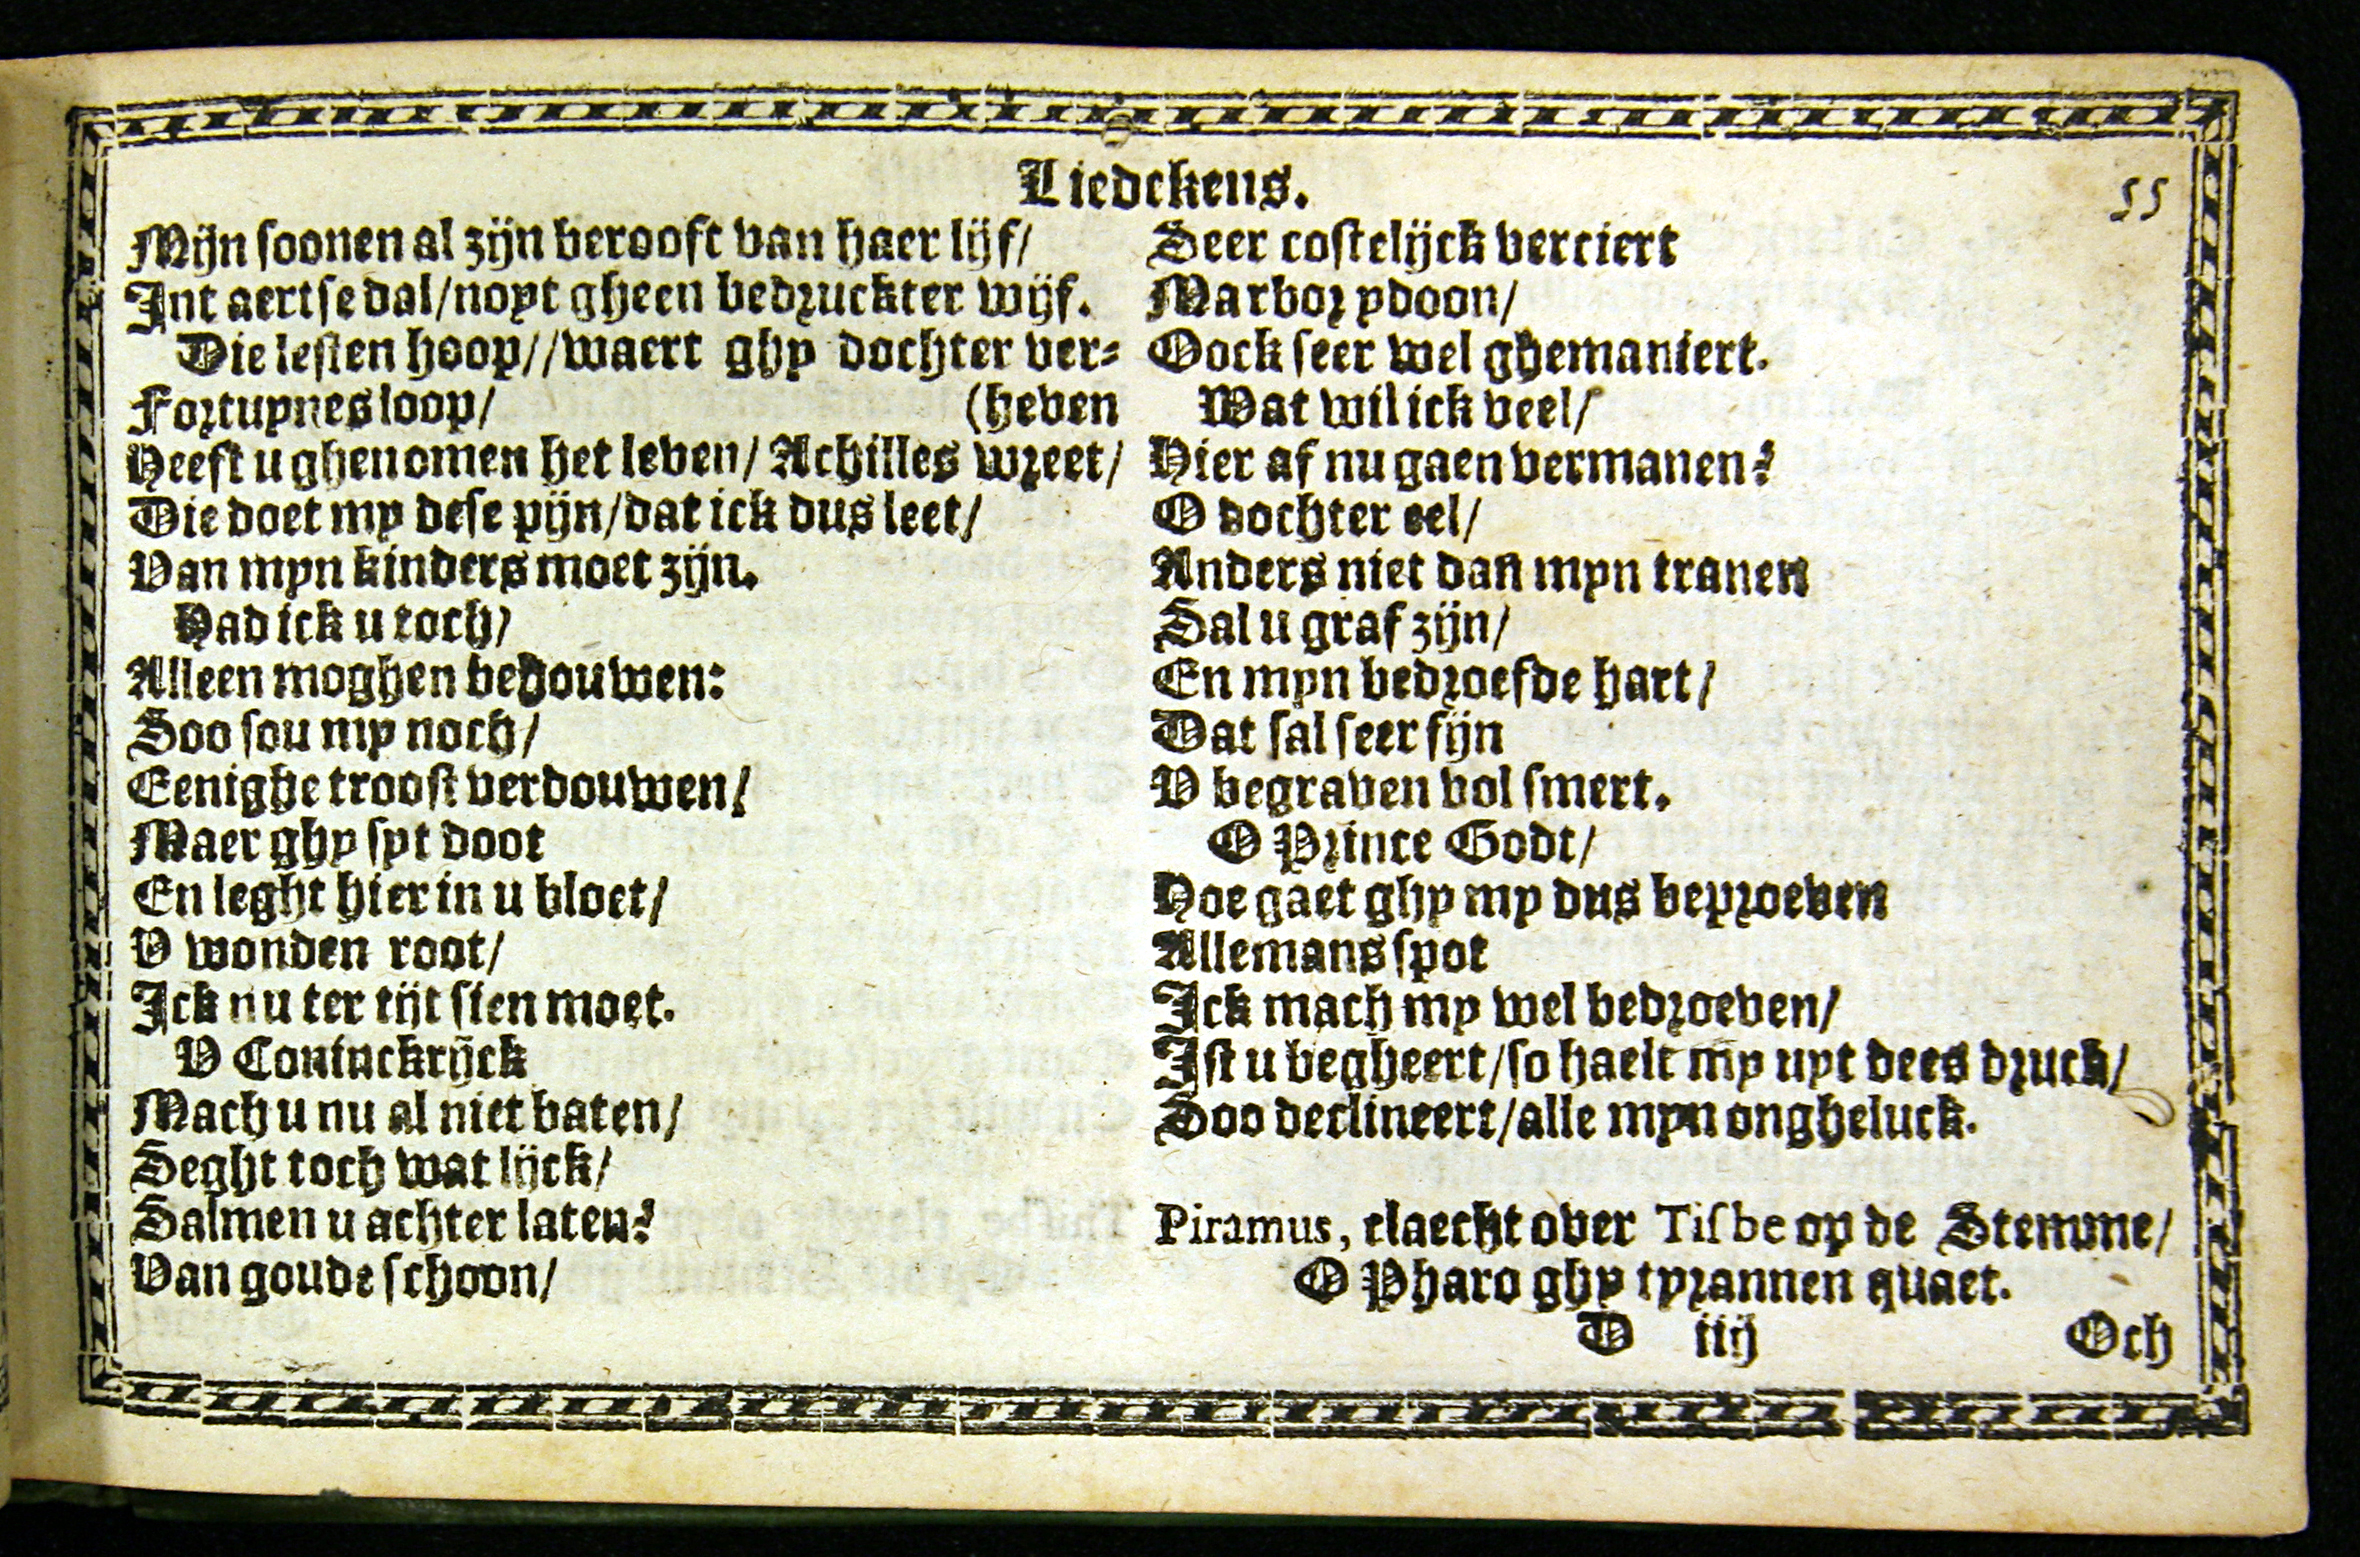 Liedekens.
55
Mijn soonen al zijn berooft van haer lijf/
Int aertse dal/noyt gheen bedruckter wijf.
Die lesten hoop//waert ghy dochter ver-
Fortuynes loop/ (heven
Heeft u ghenomen het leven/ Achilles wreet/
Die doet my dese pijn/dat ick dus leet/
Van myn kinders moet zijn.
Had ick u toch/
Alleen moghen bedouwen:
Soo sou my noch/
Eenighe troost verdouwen/
Maer ghy syt doot
En leght hier in u bloet/
V wonden root/
Ick nu ter tijt sien moet.
V Coninckrijck
Mach u nu al niet baten/
Seght toch wat lijck/
Salmen u achter laten?
Van goude schoon/
Seer costelijck verciert
Marbor ydoon/
Oock seer wel ghemaniert.
Wat wil ick veel/
Hier af nu gaen vermanen?
O dochter eel/
Anders niet dan myn tranen
Sal u graf zijn/
En myn bedroefde hart/
Dat sal seer fijn
V begraven vol smert.
O Prince Godt/
Hoe gaet ghy my dus beproeven
Allemans spot
Ick mach my wel bedroeven/
Ist u begheert/so haelt my uyt dees druck/
Soo declineert/alle myn ongheluck.
Piramus, claecht over Tisbe op de Stemme/
O Pharo ghy tyrannen quaet.
D iiij Och